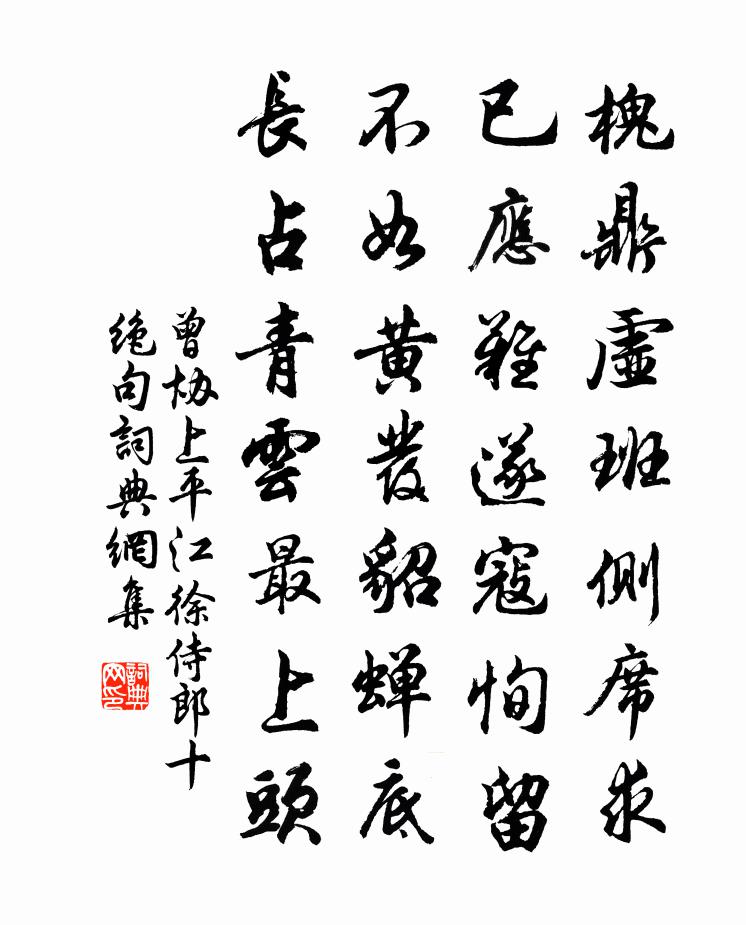 槐鼎虛班側席求
已應難遂寇恂留
不如黃髮貂蟬底
長占青雲最上頭
曾協上平江徐侍郎十
絶句詞典網集
詞典網印